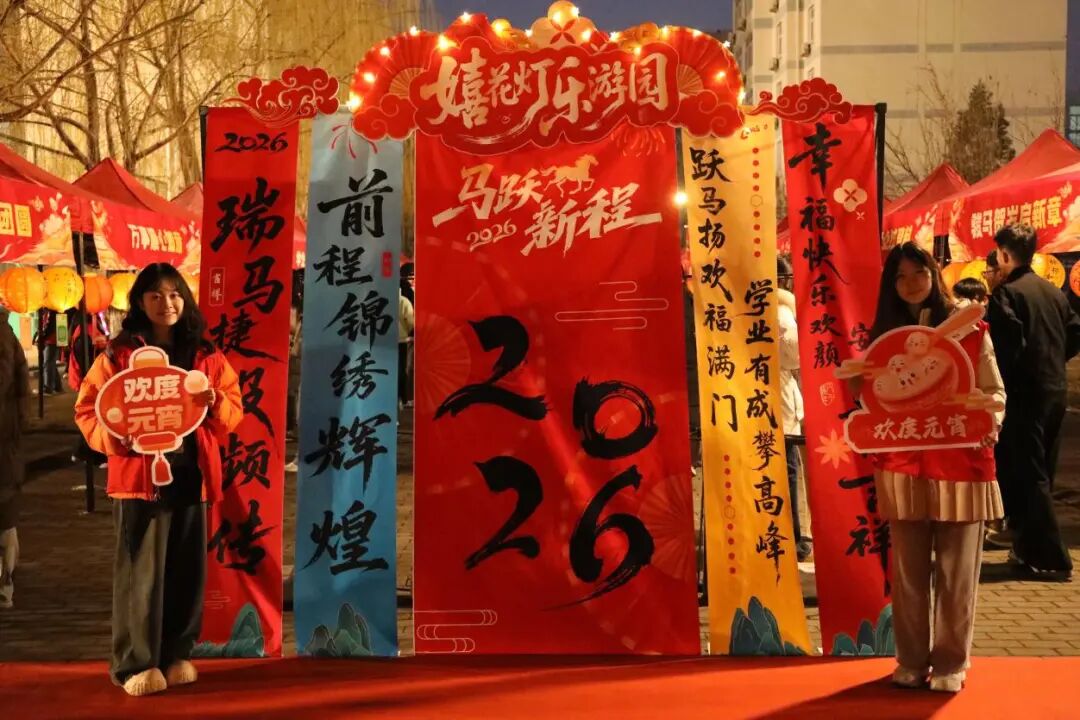 嬉花灯乐游园
2026
瑞马捷足频传
前程锦绣辉煌
马跃
2026
新程
2026
跃马扬欢福满门
学业有成攀高峰
幸福快乐欢颜
吉祥
欢度
元宵
欢度元宵
团圆
骏马贺岁启新章